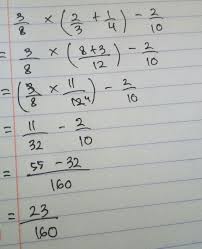 3/8 × (2/3 + 1/4) − 2/10
= 3/8 × (8+3/12) − 2/10
= (3/8 × 11/12 4) − 2/10
= 11/32 − 2/10
= 55 − 32/160
= 23/160